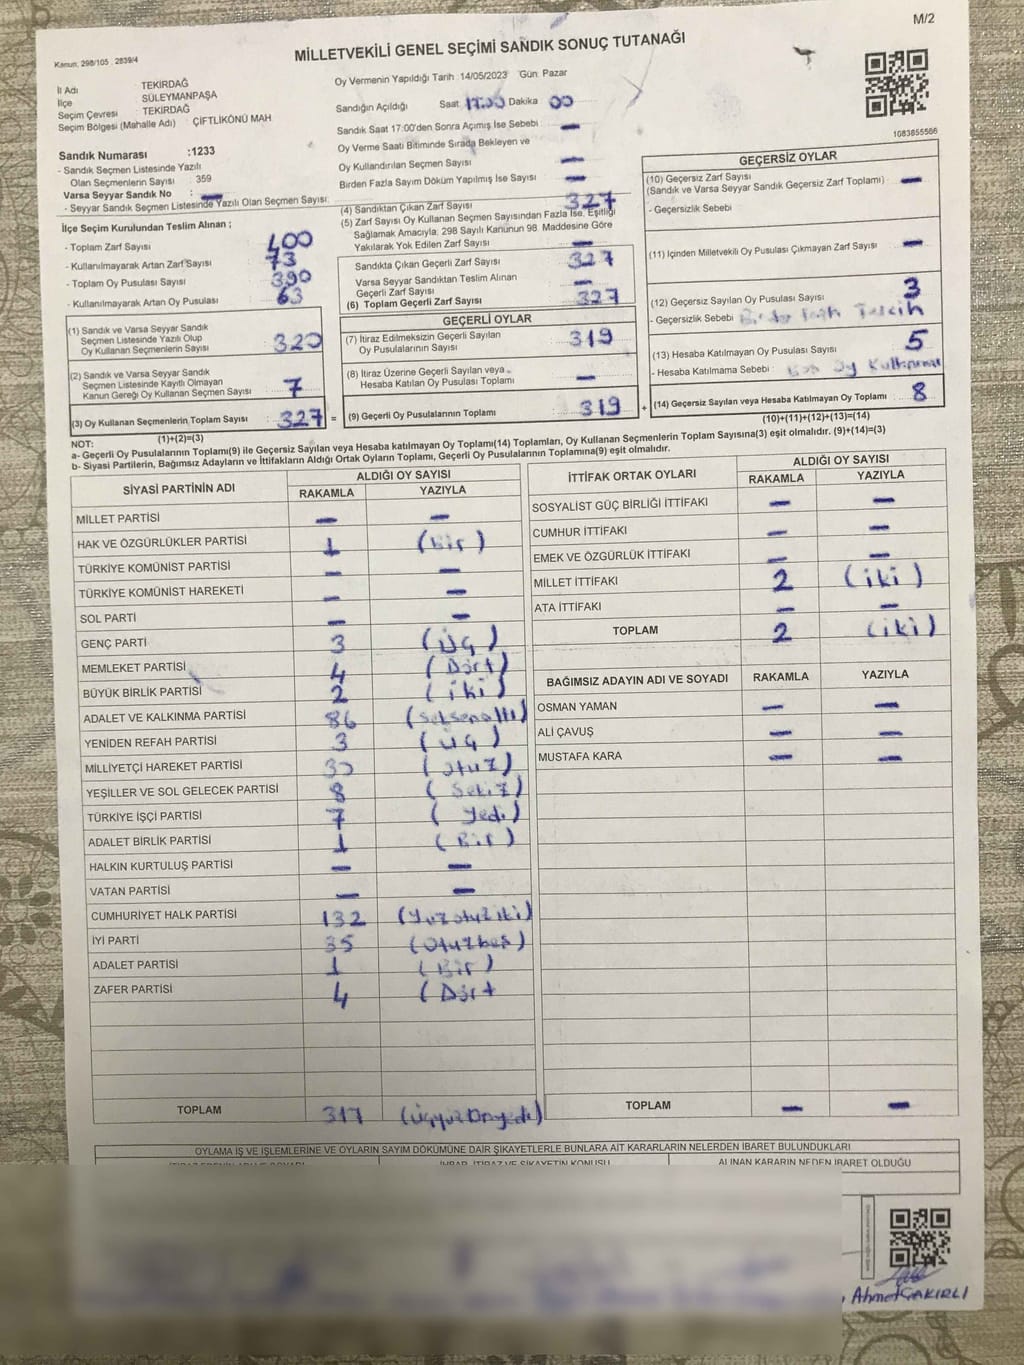 M/2
Kanun, 298/105 , 2839/4
MİLLETVEKİLİ GENEL SEÇİMİ SANDIK SONUÇ TUTANAĞI
İl Adı TEKİRDAĞ
İlçe SÜLEYMANPAŞA
Seçim Çevresi TEKİRDAĞ
Seçim Bölgesi (Mahalle Adı) : ÇİFTLİKÖNÜ MAH
Sandık Numarası :1233
- Sandık Seçmen Listesinde Yazılı
Olan Seçmenlerin Sayısı : 359
Varsa Seyyar Sandık No : —
- Seyyar Sandık Seçmen Listesinde Yazılı Olan Seçmen Sayısı:
Oy Vermenin Yapıldığı Tarih :14/05/2023 Gün: Pazar
Sandığın Açıldığı Saat 17:00 Dakika 00
Sandık Saat 17:00'den Sonra Açımış İse Sebebi —
Oy Verme Saati Bitiminde Sırada Bekleyen ve
Oy Kullandırılan Seçmen Sayısı —
Birden Fazla Sayım Döküm Yapılmış İse Sayısı —
1083855566
İlçe Seçim Kurulundan Teslim Alınan ;
- Toplam Zarf Sayısı 400
- Kullanılmayarak Artan Zarf Sayısı 73
- Toplam Oy Pusulası Sayısı 390
- Kullanılmayarak Artan Oy Pusulası 63
(1) Sandık ve Varsa Seyyar Sandık
Seçmen Listesinde Yazılı Olup
Oy Kullanan Seçmenlerin Sayısı 320
(2) Sandık ve Varsa Seyyar Sandık
Seçmen Listesinde Kayıtlı Olmayan
Kanun Gereği Oy Kullanan Seçmen Sayısı 7
(3) Oy Kullanan Seçmenlerin Toplam Sayısı 327 =
(1)+(2)=(3)
(4) Sandıktan Çıkan Zarf Sayısı 327
(5) Zarf Sayısı Oy Kullanan Seçmen Sayısından Fazla İse, Eşitliği
Sağlamak Amacıyla, 298 Sayılı Kanunun 98. Maddesine Göre
Yakılarak Yok Edilen Zarf Sayısı —
Sandıkta Çıkan Geçerli Zarf Sayısı 327
Varsa Seyyar Sandıktan Teslim Alınan
Geçerli Zarf Sayısı —
(6) Toplam Geçerli Zarf Sayısı 327
GEÇERLİ OYLAR
(7) İtiraz Edilmeksizin Geçerli Sayılan
Oy Pusulalarının Sayısı 319
(8) İtiraz Üzerine Geçerli Sayılan veya
Hesaba Katılan Oy Pusulası Toplamı —
(9) Geçerli Oy Pusulalarının Toplamı 319 +
GEÇERSİZ OYLAR
(10) Geçersiz Zarf Sayısı
(Sandık ve Varsa Seyyar Sandık Geçersiz Zarf Toplamı) —
- Geçersizlik Sebebi
(11) İçinden Milletvekili Oy Pusulası Çıkmayan Zarf Sayısı —
(12) Geçersiz Sayılan Oy Pusulası Sayısı 3
- Geçersizlik Sebebi Tercih
(13) Hesaba Katılmayan Oy Pusulası Sayısı 5
- Hesaba Katılmama Sebebi : Oy
(14) Geçersiz Sayılan veya Hesaba Katılmayan Oy Toplamı 8
(10)+(11)+(12)+(13)=(14)
NOT:
a- Geçerli Oy Pusulalarının Toplamı(9) ile Geçersiz Sayılan veya Hesaba katılmayan Oy Toplamı(14) Toplamları, Oy Kullanan Seçmenlerin Toplam Sayısına(3) eşit olmalıdır. (9)+(14)=(3)
b- Siyasi Partilerin, Bağımsız Adayların ve İttifakların Aldığı Ortak Oyların Toplamı, Geçerli Oy Pusulalarının Toplamına(9) eşit olmalıdır.
SİYASİ PARTİNİN ADI ALDIĞI OY SAYISI
RAKAMLA YAZIYLA
MİLLET PARTİSİ — —
HAK VE ÖZGÜRLÜKLER PARTİSİ 1 (Bir)
TÜRKİYE KOMÜNİST PARTİSİ — —
TÜRKİYE KOMÜNİST HAREKETİ — —
SOL PARTİ — —
GENÇ PARTİ 3 (Üç)
MEMLEKET PARTİSİ 4 (Dört)
BÜYÜK BİRLİK PARTİSİ 2 (iki)
ADALET VE KALKINMA PARTİSİ 86 (Seksenaltı)
YENİDEN REFAH PARTİSİ 3 (Üç)
MİLLİYETÇİ HAREKET PARTİSİ 30 (Otuz)
YEŞİLLER VE SOL GELECEK PARTİSİ 8 (Sekiz)
TÜRKİYE İŞÇİ PARTİSİ 7 (Yedi)
ADALET BİRLİK PARTİSİ 1 (Bir)
HALKIN KURTULUŞ PARTİSİ — —
VATAN PARTİSİ — —
CUMHURİYET HALK PARTİSİ 132 (Yüzotuziki)
İYİ PARTİ 35 (Otuzbeş)
ADALET PARTİSİ 1 (Bir)
ZAFER PARTİSİ 4 (Dört
TOPLAM 317 (Üçyüzonyedi)
İTTİFAK ORTAK OYLARI ALDIĞI OY SAYISI
RAKAMLA YAZIYLA
SOSYALİST GÜÇ BİRLİĞİ İTTİFAKI — —
CUMHUR İTTİFAKI — —
EMEK VE ÖZGÜRLÜK İTTİFAKI — —
MİLLET İTTİFAKI 2 (iki)
ATA İTTİFAKI — —
TOPLAM 2 (iki)
BAĞIMSIZ ADAYIN ADI VE SOYADI RAKAMLA YAZIYLA
OSMAN YAMAN — —
ALİ ÇAVUŞ — —
MUSTAFA KARA — —
TOPLAM — —
OYLAMA İŞ VE İŞLEMLERİNE VE OYLARIN SAYIM DÖKÜMÜNE DAİR ŞİKAYETLERLE BUNLARA AİT KARARLARIN NELERDEN İBARET BULUNDUKLARI
İHBAR, İTİRAZ VE ŞİKAYETİN KONUSU ALINAN KARARIN NEDEN İBARET OLDUĞU
Ahmet ÇAKIRLI